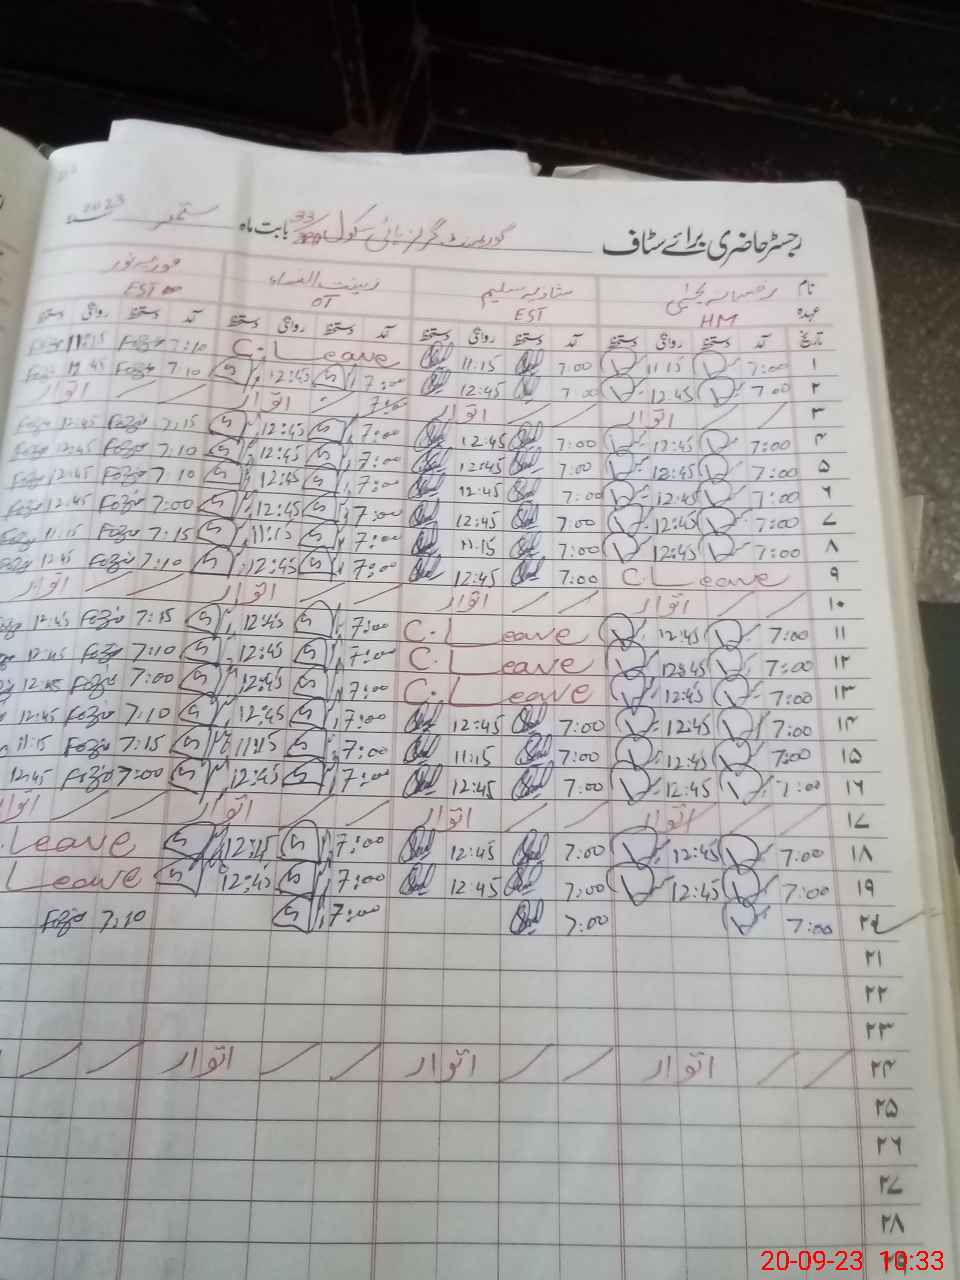 رجسٹر حاضری برائے سٹاف گورنمنٹ گرلز ہائی سکول بابت ماہ ستمبر 2023
نام رخسانہ شادیہ سلیم زینت النساء
عہدہ HM EST OT EST
تاریخ آمد دستخط روانگی دستخط آمد دستخط روانگی دستخط آمد دستخط روانگی دستخط آمد دستخط روانگی دستخط
۱ 7:00 11:15 7:00 11:15 C. Leave 7:10 11:15
۲ 7:00 12:45 7:00 12:45 7:00 12:45 7:10 12:45
۳ اتوار اتوار اتوار اتوار
۴ 7:00 12:45 7:00 12:45 7:00 12:45 7:15 12:45
۵ 7:00 12:45 7:00 12:45 7:00 12:45 7:10 12:45
۶ 7:00 12:45 7:00 12:45 7:00 12:45 7:10 12:45
۷ 7:00 12:45 7:00 12:45 7:00 12:45 7:00 12:45
۸ 7:00 12:45 7:00 11:15 7:00 11:15 7:15 11:15
۹ C. Leave 7:00 12:45 7:00 12:45 7:10 12:45
۱۰ اتوار اتوار اتوار اتوار
۱۱ 7:00 12:45 C. Leave 7:00 12:45 7:15 12:45
۱۲ 7:00 12:45 C. Leave 7:00 12:45 7:10 12:45
۱۳ 7:00 12:45 C. Leave 7:00 12:45 7:00 12:45
۱۴ 7:00 12:45 7:00 12:45 7:00 12:45 7:10 12:45
۱۵ 7:00 12:45 7:00 11:15 7:00 11:15 7:15 11:15
۱۶ 7:00 12:45 7:00 12:45 7:00 12:45 7:00 12:45
۱۷ اتوار اتوار اتوار اتوار
۱۸ 7:00 12:45 7:00 12:45 7:00 12:45 Leave
۱۹ 7:00 12:45 7:00 12:45 7:00 12:45 Leave
۲۰ 7:00 7:00 7:00 7:10
۲۱
۲۲
۲۳
۲۴ اتوار اتوار اتوار
۲۵
۲۶
۲۷
۲۸
20-09-23 10:33